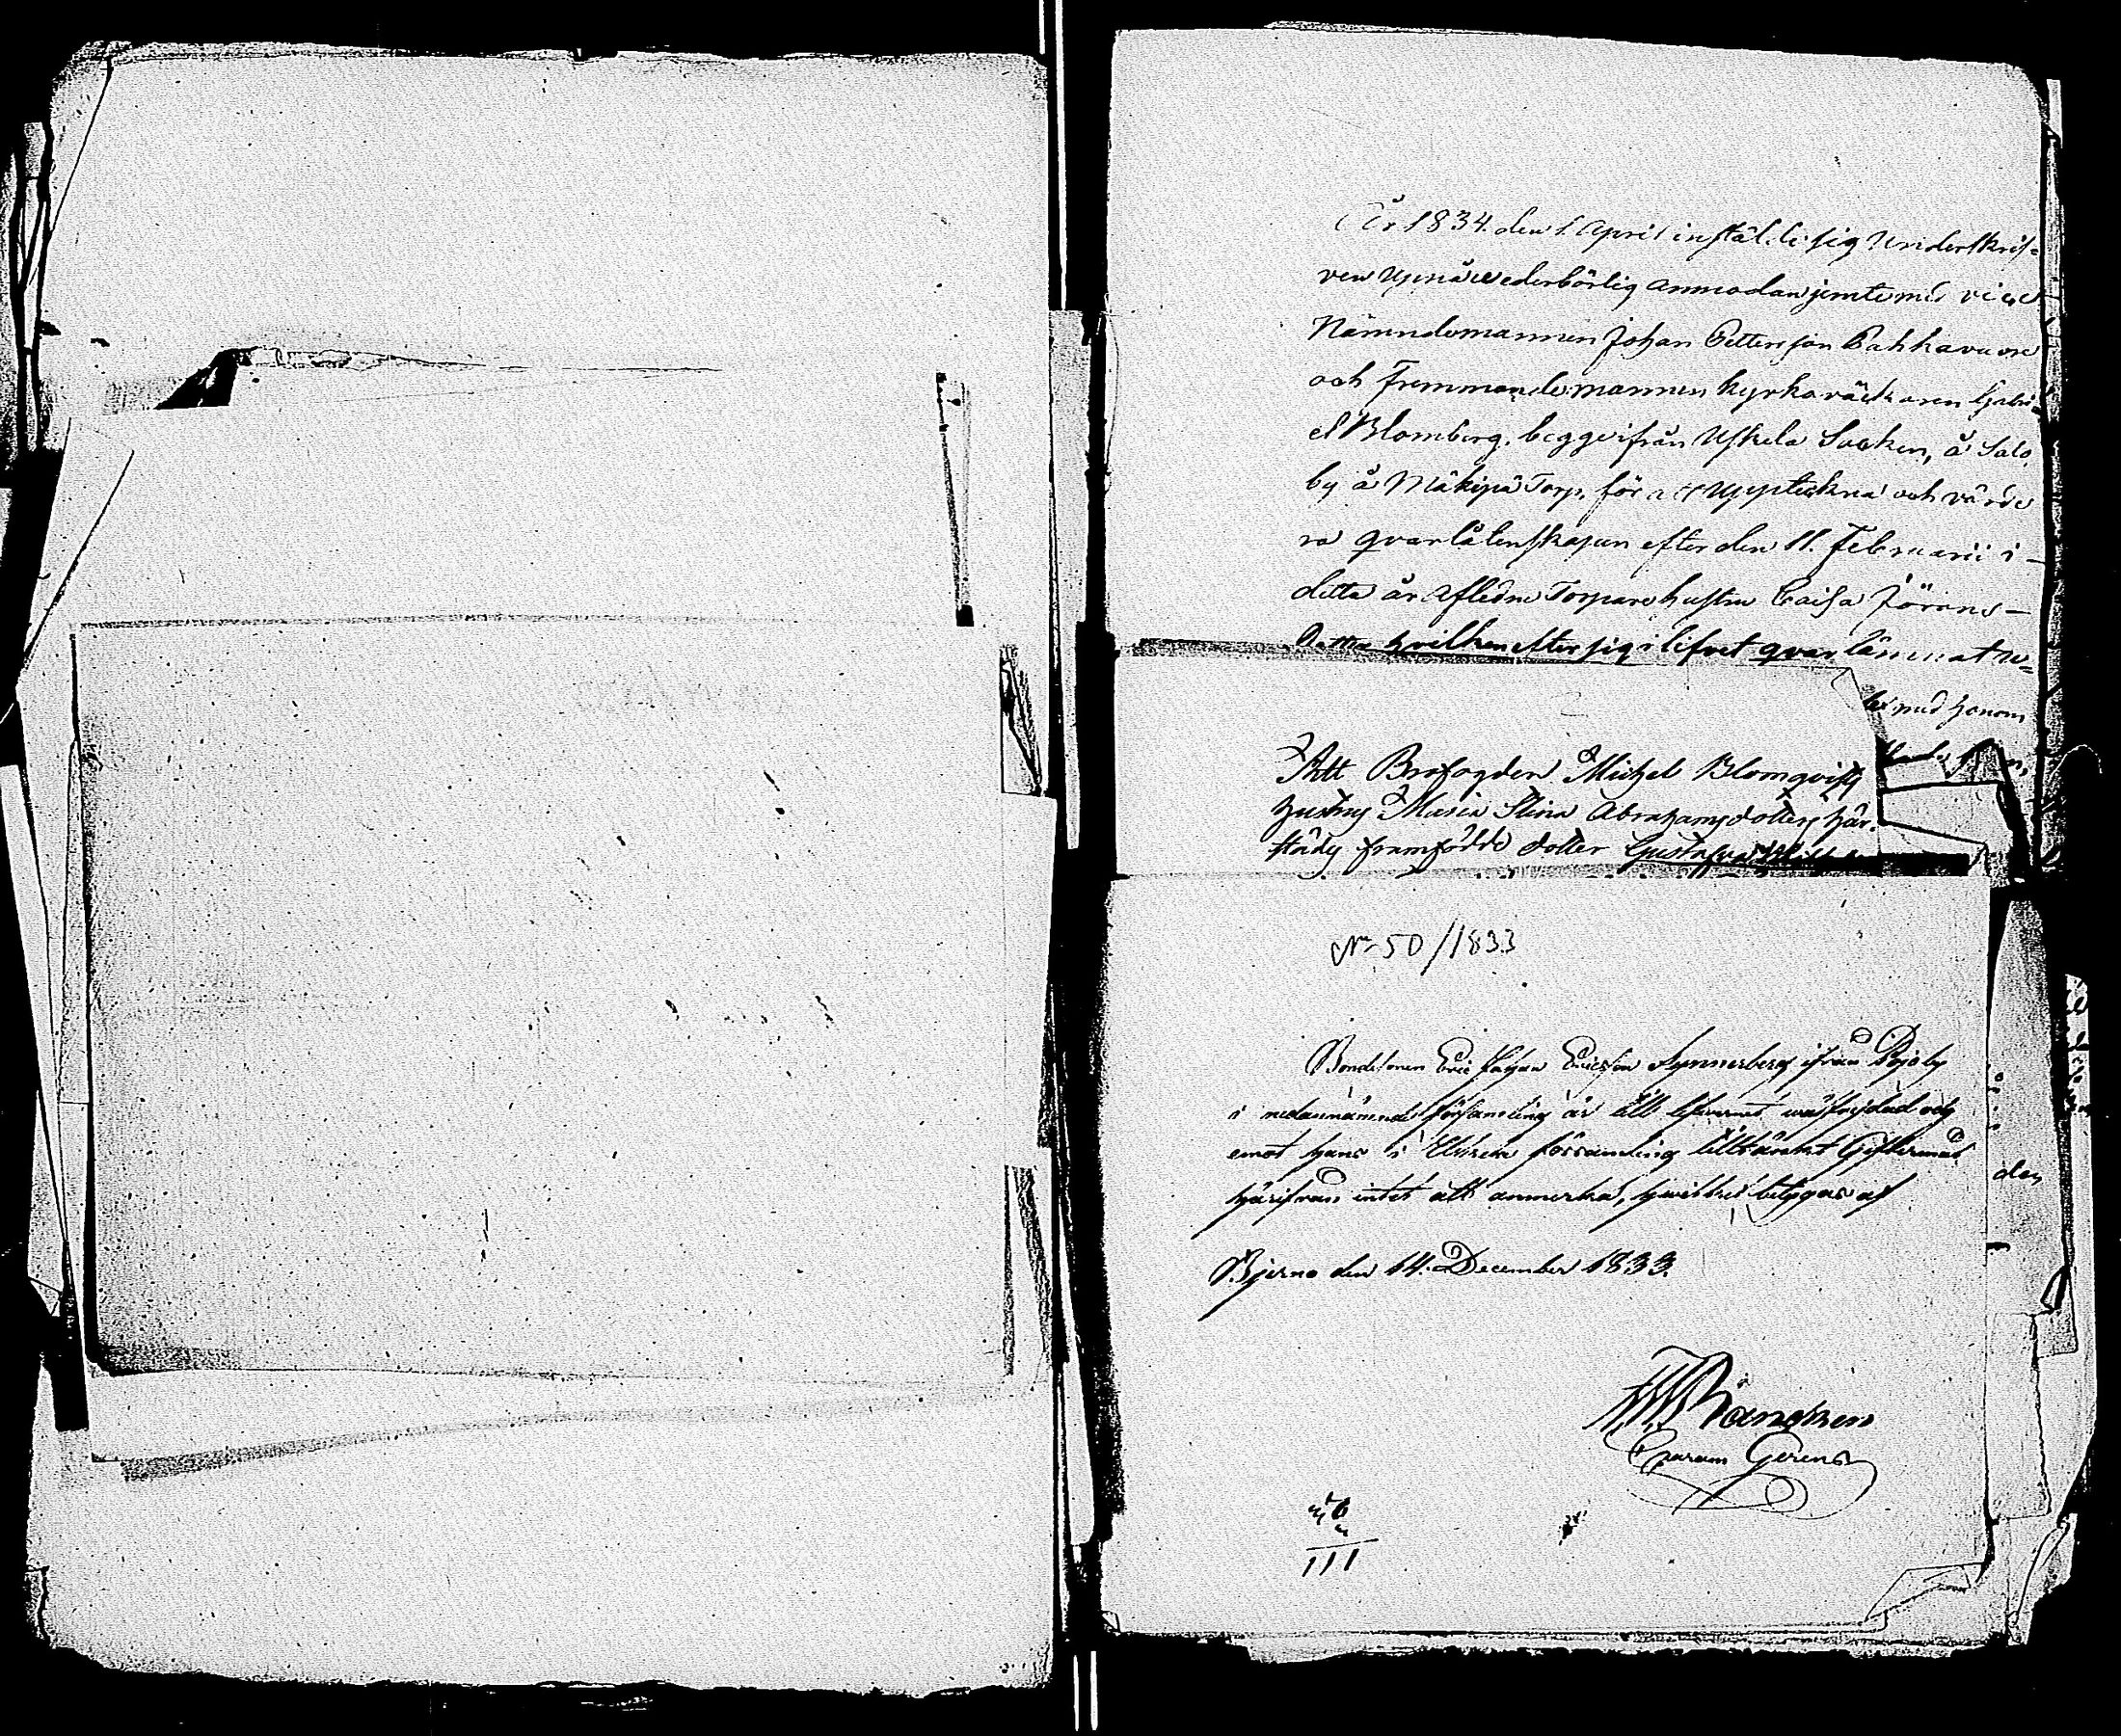 År 1834. den 1. April instälde sig Underskrif-
ven uppå wederbörlig anmodan jemte med vice
Nämndemannen Johan Pettersson Pahkavuore
och Fremmandemannen Kyrkoväcktaren Gabri-
el Blomberg, begge ifrån Uskela Socken, å Salo
by å Mäkipä Torp, för att Uppteckna och värde
ra qvarlåtenskapen efter den 11. Februarii i
detta år Aflidne Torpare hustru Caisa Jörans-
Dotter hvilken efter sig i lifvet qvarlämnat
med honom
Att Brofogden Michel Blomqvists
hustrus Maria Stina Abrahamsdotters här-
städs framfödde dotter Gustafva
No 50/1833
Bondesonen Eric Johan Ericsson Synnerberg ifrån Pojoby
i nedannämnde församling är till lefvernet wälfrejdad och
emot hans i Uskela församling tilltänkt Giftermål
härifrån intet att anmerka, hwilket betygas af
den
Bjerno den 14. December 1833.
Curam Gerens
111